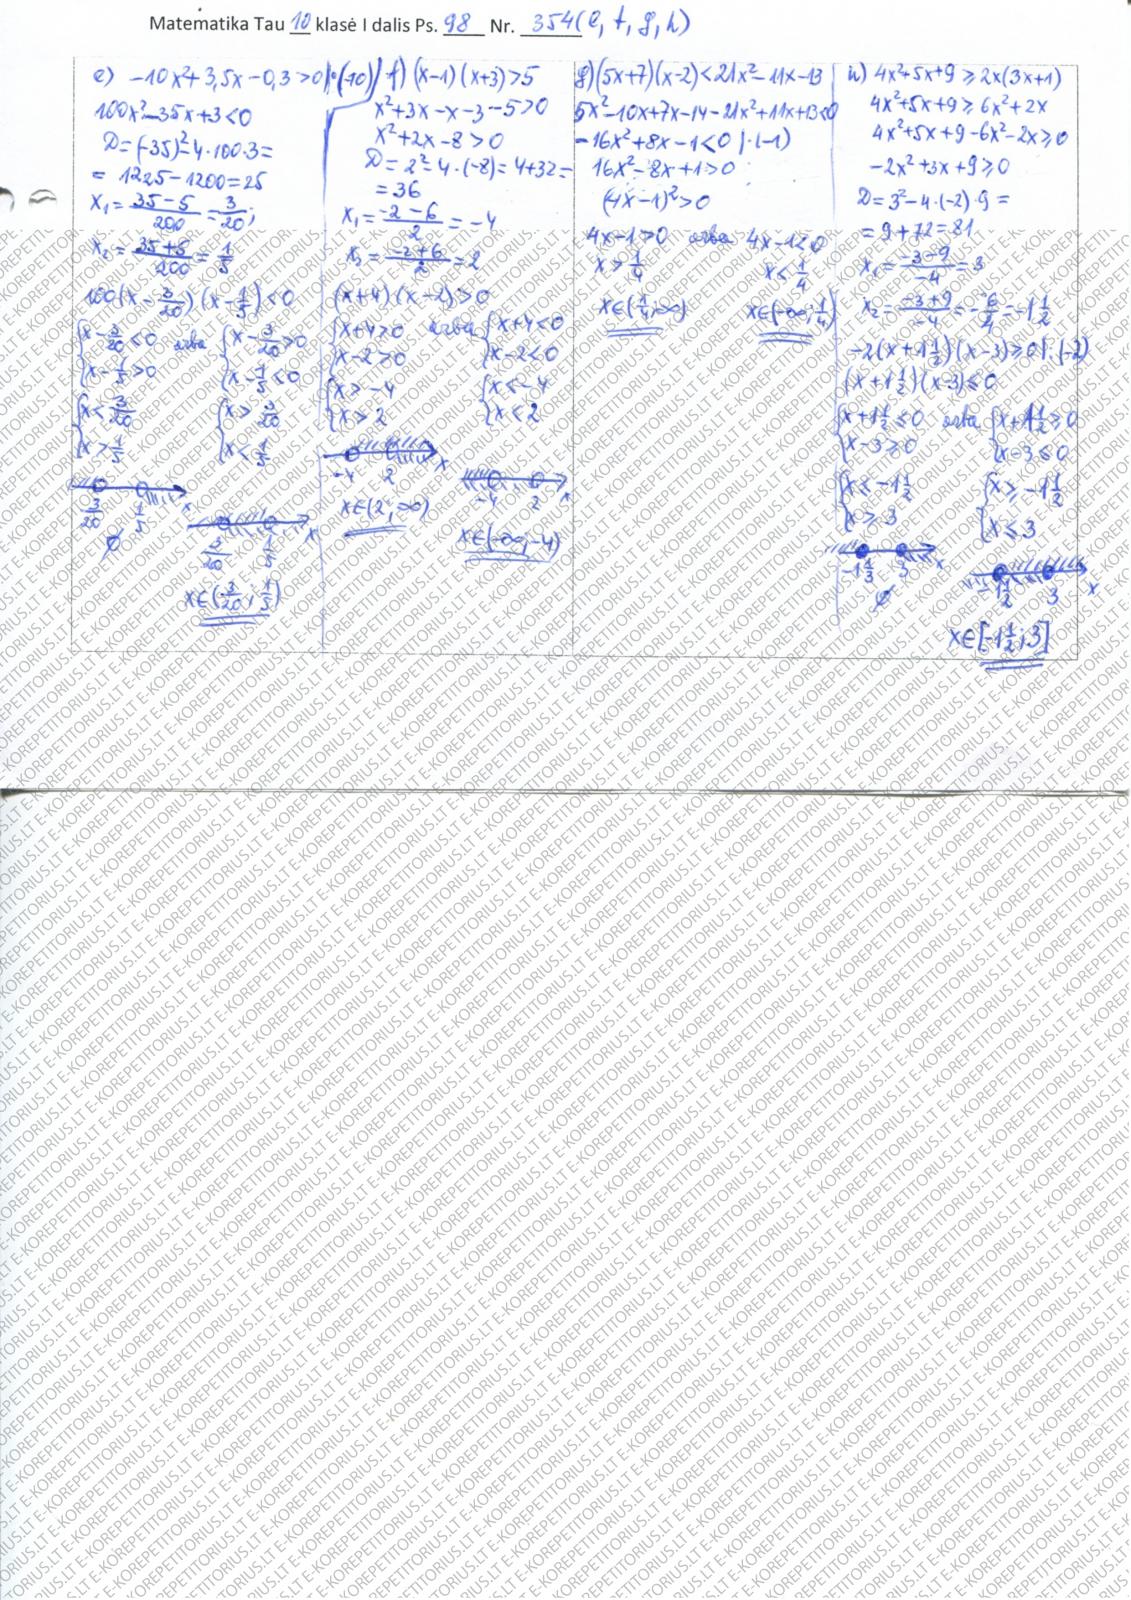 Matematika Tau 10 klasė I dalis Ps. 98 Nr. 354(e, f, g, h)
e) -10x²+3,5x-0,3>0 |·(-10)
100x²-35x+3<0
D=(-35)²-4·100·3=
=1225-1200=25
x₁=(35-5)/200=3/20;
x₂=(35+5)/200=1/5
100(x-3/20)(x-1/5)<0
{x-3/20<0 arba {x-3/20>0
{x-1/5>0 {x-1/5<0
{x<3/20 {x>3/20
{x>1/5 {x<1/5
3/20 1/5 x
∅
3/20 1/5 x
x∈(3/20;1/5)
f) (x-1)(x+3)>5
x²+3x-x-3-5>0
x²+2x-8>0
D=2²-4·(-8)=4+32=
=36
x₁=(-2-6)/2=-4
x₂=(-2+6)/2=2
(x+4)(x-2)>0
{x+4>0 arba {x+4<0
{x-2>0 {x-2<0
{x>-4 {x<-4
{x>2 {x<2
-4 2 x
-4 2 x
x∈(2;∞)
x∈(-∞;-4)
g) (5x+7)(x-2)<21x²-11x-13
5x²-10x+7x-14-21x²+11x+13<0
-16x²+8x-1<0 |·(-1)
16x²-8x+1>0
(4x-1)²>0
4x-1>0 arba 4x-1<0
x>1/4 x<1/4
x∈(1/4;∞) x∈(-∞;1/4)
h) 4x²+5x+9≥2x(3x+1)
4x²+5x+9≥6x²+2x
4x²+5x+9-6x²-2x≥0
-2x²+3x+9≥0
D=3²-4·(-2)·9=
=9+72=81
x₁=(-3-9)/-4=3
x₂=(-3+9)/-4=-6/4=-1 1/2
-2(x+1 1/2)(x-3)≥0 |:(-2)
(x+1 1/2)(x-3)≤0
{x+1 1/2≤0 arba {x+1 1/2≥0
{x-3≥0 {x-3≤0
{x≤-1 1/2 {x≥-1 1/2
{x≥3 {x≤3
-1 1/3 3 x
∅
-1 1/2 3 x
x∈[-1 1/2;3]
E-KOREPETITORIUS.LT